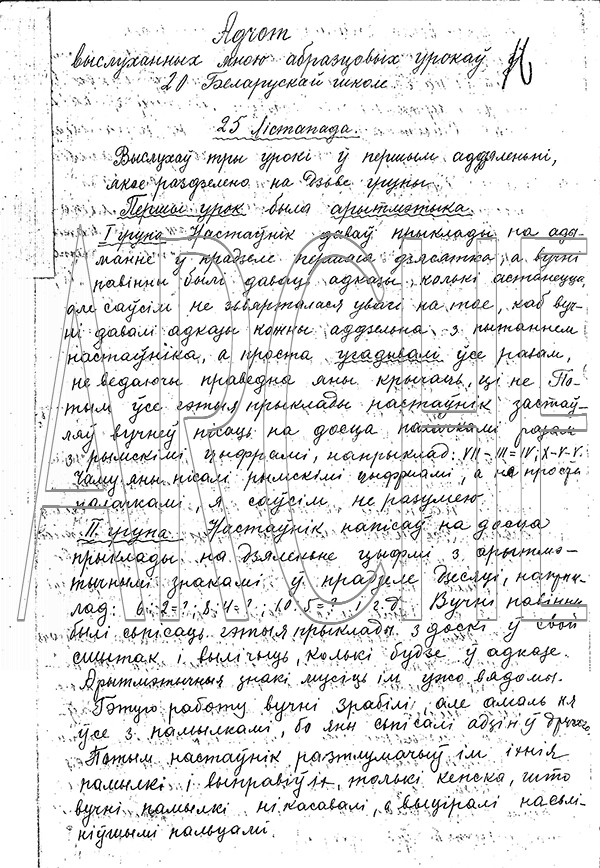 Адчот
выслуханных мною абразцовых урокаў
20 Беларускай школе
25 Лістапада.
Выслухаў тры урокі ў першым аддзяленьні,
якое разделено на дзьве групы.
Першы урок была арытмэтыка.
I група Настаўнік даваў прыклады на ады-
манне ў прадзеле першага дзясятка, а вучні
павінны былі даваць адказы, колькі астанецца,
але саўсім не зьвярталася увагі на тое, каб вуч-
ні давалі адказы кожны аддзельна з пытаннем
настаўніка, а проста угадывалі ўсе разам,
не ведаючы праведна яны крычаць, ці не. По-
тым ўсе гэтыя прыклады настаўнік застаў-
ляў вучнеў пісаць на досца палачкамі разам
з рымскімі цыфрамі, напрыклад: VII-III=IV; X-V-V.
Чаму яны пісалі рымскімі цыфрамі, а не проста
палачкамі, я саўсім не разумею.
II група. Настаўнік напісаў на досца
прыклады на дзяленьне цыфмі з арытмэ-
тычнымі знакамі ў прадзеле дзесяці, напрык-
лад: 6:2=?; 8:4=?; 10:5=? і г.д. Вучні павінны
былі сьпісаць гэтыя прыклады з доскі ў свой
сшытак і вылічыць, колькі будзе ў адказе.
Арытмэтычныя знакі мусіць ім ужо вядомы.
Гэтую работу вучні зрабілі, але амаль ня
ўсе з памылкамі, бо яны сьпісалі адзін ў другого.
Потым настаўнік разтлумачыў ім іхнія
памылкі і выправіў іх, толькі кепска, што
вучні памылкі ні касавалі, а выціралі насьлі-
ніўшымі пальцамі.
ARCHE